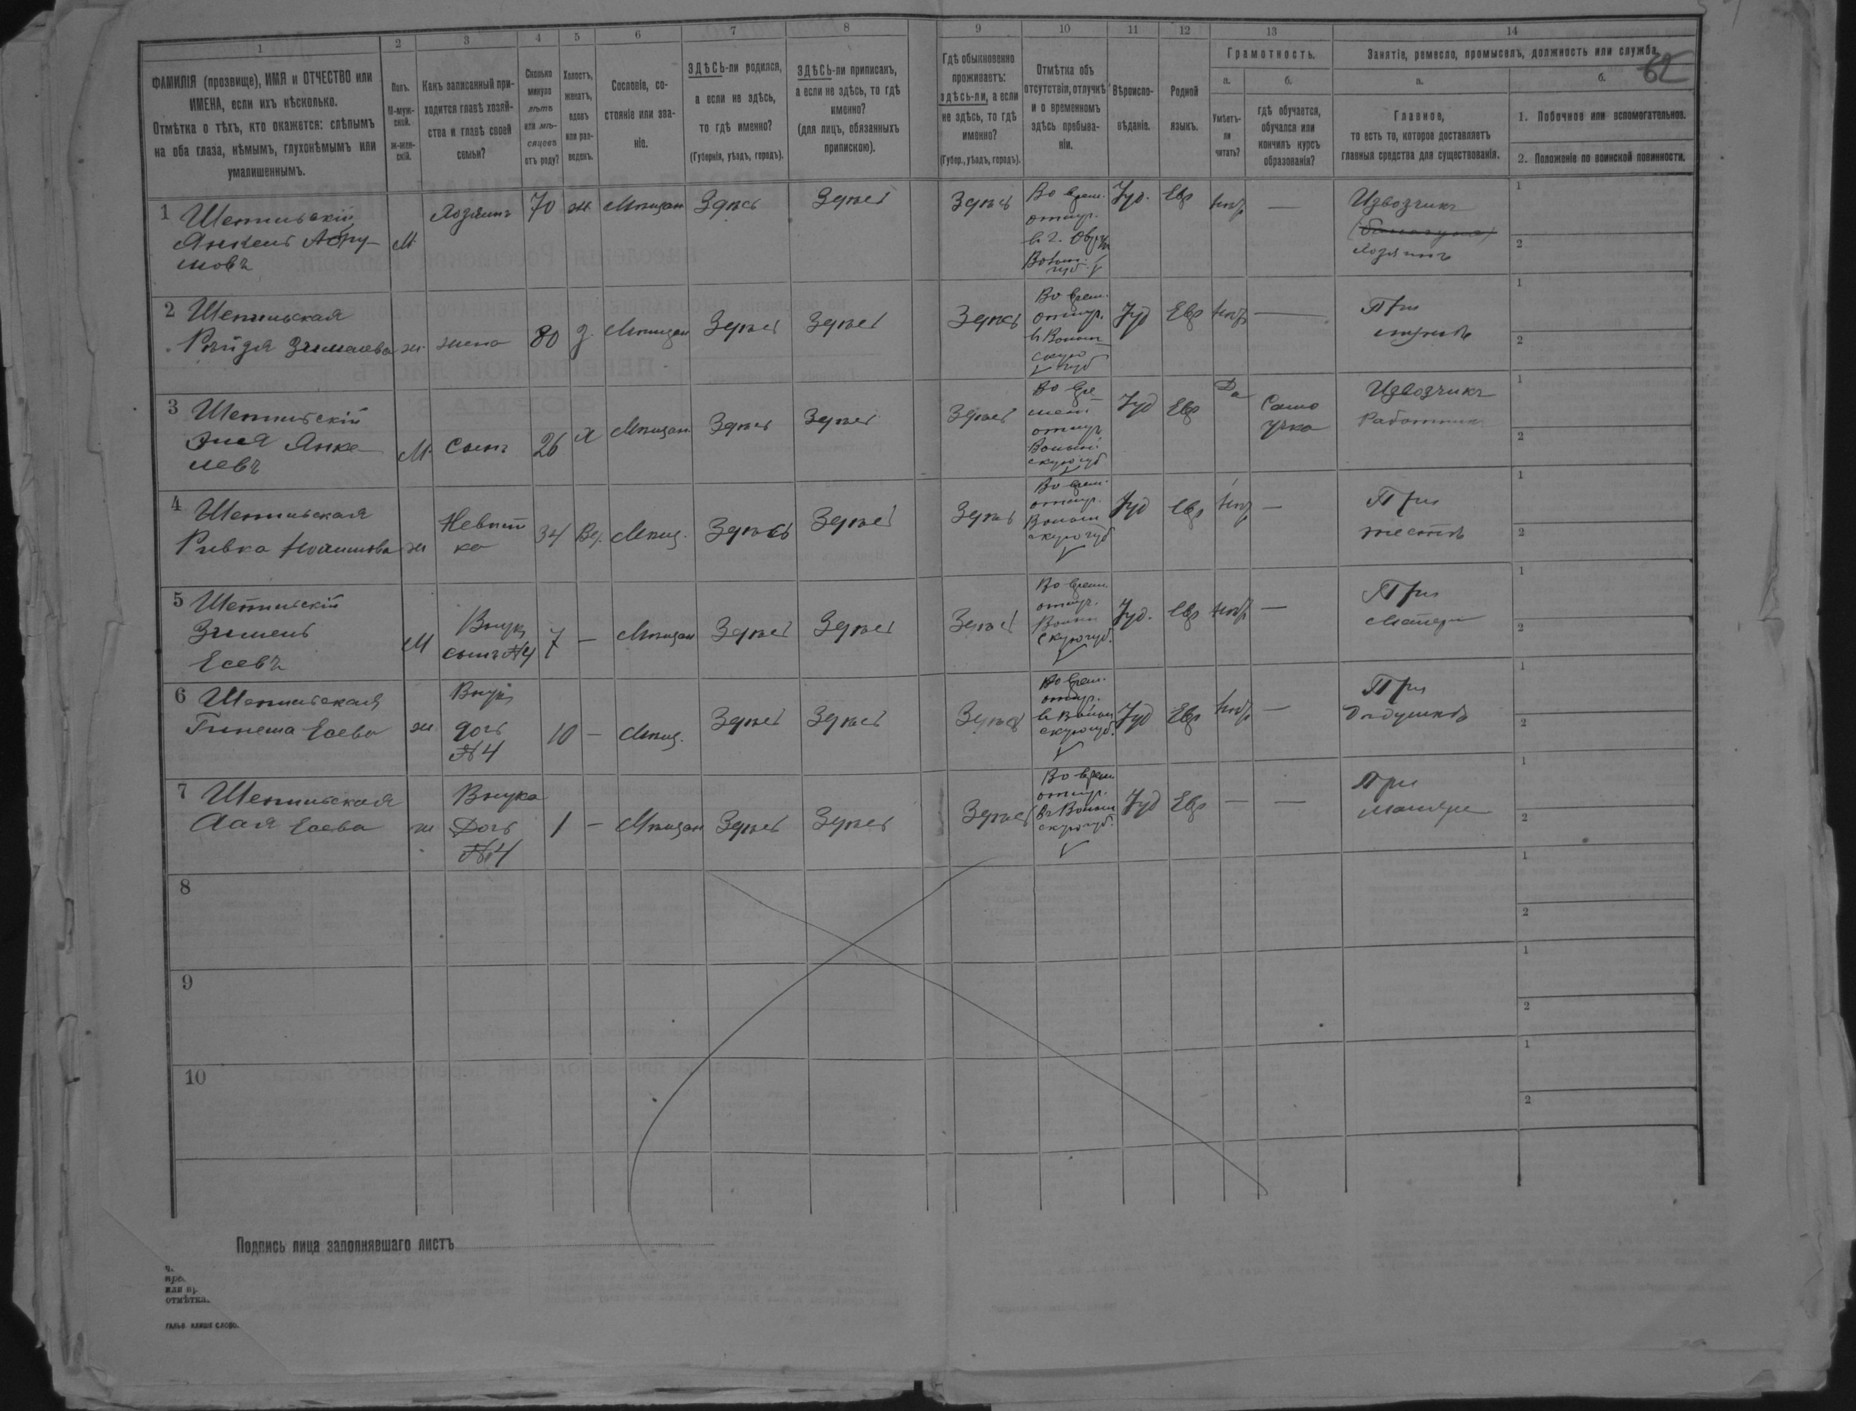 62
1 2 3 4 5 6 7 8 9 10 11 12 13 14
ФАМИЛІЯ (прозвище), ИМЯ и ОТЧЕСТВО или
ИМЕНА, если ихъ нѣсколько.
Отмѣтка о тѣхъ, кто окажется: слѣпымъ
на оба глаза, нѣмымъ, глухонѣмымъ или
умалишеннымъ.
Полъ.
М-муж-
ской.
Ж-жен-
скій.
Какъ записанный при-
ходится главѣ хозяй-
ства и главѣ своей
семьи?
Сколько
минуло
лѣтъ
или мѣ-
сяцевъ
отъ роду?
Холостъ,
женатъ,
вдовъ
или раз-
веденъ.
Сословіе, со-
стояніе или зва-
ніе.
ЗДѢСЬ-ли родился,
а если не здѣсь,
то гдѣ именно?
(Губернія, уѣздъ, городъ).
ЗДѢСЬ-ли приписанъ,
а если не здѣсь, то гдѣ
именно?
(для лицъ, обязанныхъ
припискою).
Гдѣ обыкновенно
проживаетъ:
здѣсь-ли, а если
не здѣсь, то гдѣ
именно?
(Губер., уѣздъ, городъ).
Отмѣтка объ
отсутствіи, отлучкѣ
и о временномъ
здѣсь пребыва-
ніи.
Вѣроиспо-
вѣданіе.
Родной
языкъ.
Грамотность.
а.
Умѣетъ-
ли
читать?
б.
гдѣ обучается,
обучался или
кончилъ курсъ
образованія?
Занятіе, ремесло, промыселъ, должность или служба.
а.
Главное,
то есть то, которое доставляетъ
главныя средства для существованія.
б.
1. Побочное или вспомогательное.
2. Положеніе по воинской повинности.
1 Шепильскій
Янкель Абру-
мовъ
М
Хозяинъ
70
ж
Мѣщан
Здѣсь
Здѣсь
Здѣсь
Во врем.
отлуч.
въ г.
Іуд.
Евр
—
Извозчикъ
хозяинъ
1
2
2 Шепильская
Рэйзя
ж
жена
80
З
Мѣщан
Здѣсь
Здѣсь
Здѣсь
Во врем.
отлуч.
в Волын
скую
губ
Іуд
Евр
—
При
мужѣ
1
2
3 Шепильскій
Янке-
левъ
М
Сынъ
26
Х
Мѣщан
Здѣсь
Здѣсь
Здѣсь
Во вре-
мен
отлуч
Волын
скую губ
Іуд
Евр
Да
Само
учка
Извозчикъ
Работник
1
2
4 Шепильская
Ривка
ж
Невѣст
ка
34
Вд.
Мѣщ.
Здѣсь
Здѣсь
Здѣсь
Во врем.
отлуч.
Волын
скую губ
Іуд
Евр
—
При
тестѣ
1
2
5 Шепильскій
Зимель
Есевъ
М
Внук
сынъ №4
7
—
Мѣщан
Здѣсь
Здѣсь
Здѣсь
Во врем.
отлуч.
Волын
скую губ.
Іуд.
Евр
—
При
Матери
1
2
6 Шепильская
Гинеша Есева
ж
Внук
дочь
№4
10
—
Мѣщ.
Здѣсь
Здѣсь
Здѣсь
Во врем.
отлуч.
в Волын
скую губ.
Іуд
Евр
—
При
Дѣдушкѣ
1
2
7 Шепильская
Хая Есева
ж
Внука
Дочь
№4
1
—
Мѣщан
Здѣсь
Здѣсь
Здѣсь
Во врем
отлуч.
в Волын
скую губ.
Іуд
Евр
—
—
При
матери
1
2
8
1
2
9
1
2
10
1
2
Подпись лица заполнявшаго листъ
или пр
отмѣтка.